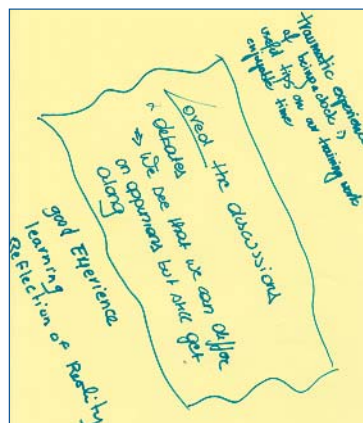 traumatic experience
of being a dock is
useful tips on our training work
enjoyable time
Loved the discussions
& debates
→ We see that we can differ
on oppinions but still get
along
good Experience
learning
Reflection of Reality